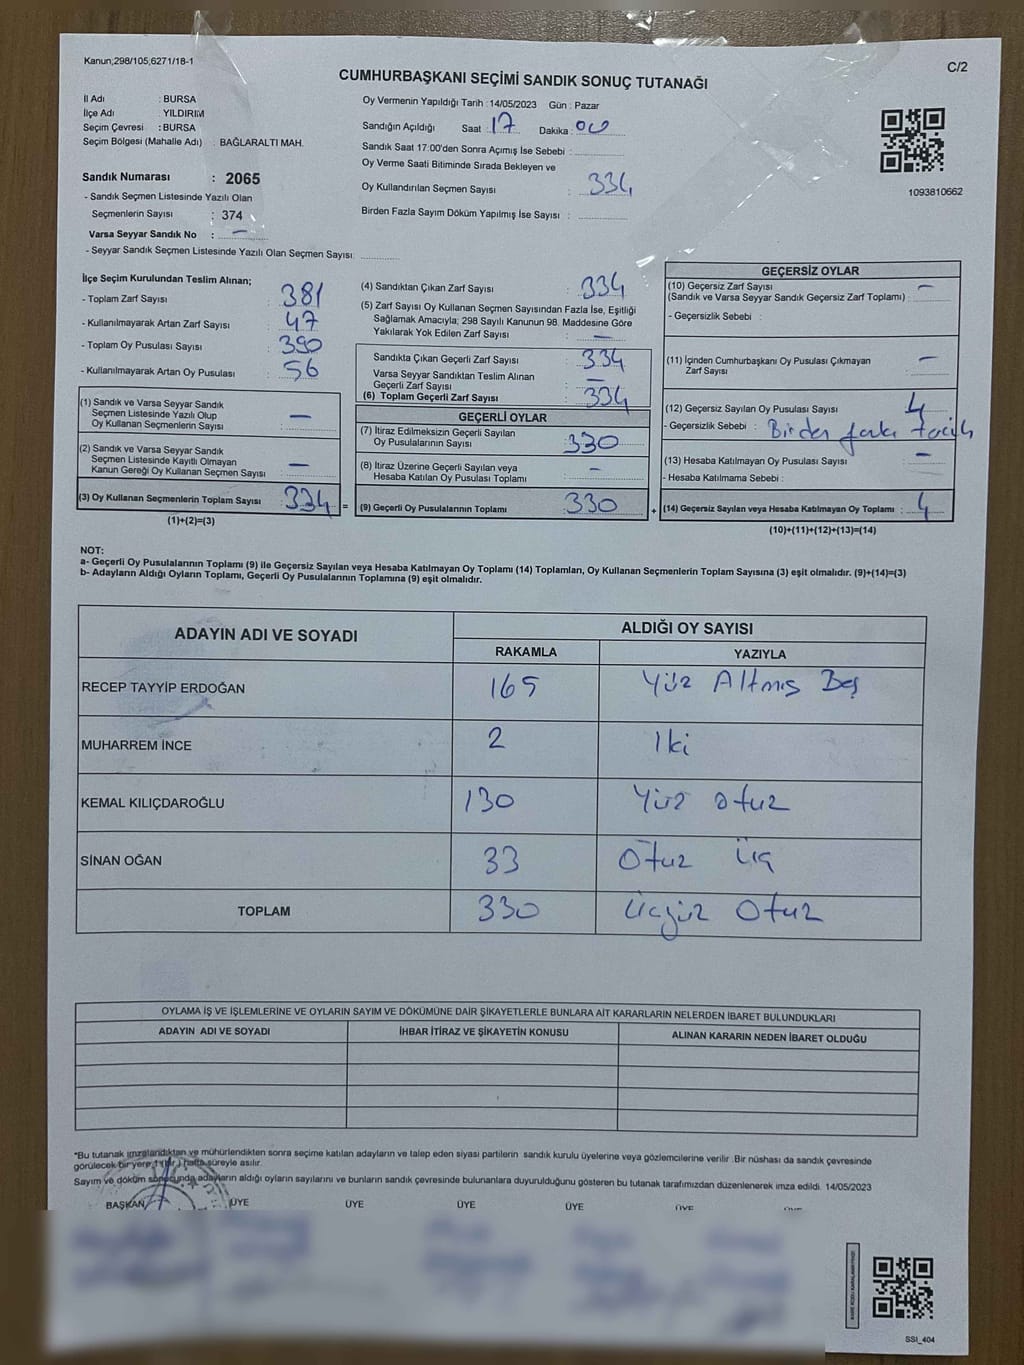 Kanun;298/105,6271/18-1
C/2
CUMHURBAŞKANI SEÇİMİ SANDIK SONUÇ TUTANAĞI
İl Adı : BURSA
İlçe Adı : YILDIRIM
Seçim Çevresi : BURSA
Seçim Bölgesi (Mahalle Adı) : BAĞLARALTI MAH.
Sandık Numarası : 2065
- Sandık Seçmen Listesinde Yazılı Olan
Seçmenlerin Sayısı : 374
Varsa Seyyar Sandık No : —
- Seyyar Sandık Seçmen Listesinde Yazılı Olan Seçmen Sayısı:
Oy Vermenin Yapıldığı Tarih : 14/05/2023 Gün : Pazar
Sandığın Açıldığı Saat : 17 Dakika : 00
Sandık Saat 17:00'den Sonra Açımış İse Sebebi :
Oy Verme Saati Bitiminde Sırada Bekleyen ve
Oy Kullandırılan Seçmen Sayısı : 334
Birden Fazla Sayım Döküm Yapılmış İse Sayısı :
1093810662
İlçe Seçim Kurulundan Teslim Alınan;
- Toplam Zarf Sayısı : 381
- Kullanılmayarak Artan Zarf Sayısı : 47
- Toplam Oy Pusulası Sayısı : 390
- Kullanılmayarak Artan Oy Pusulası : 56
(1) Sandık ve Varsa Seyyar Sandık
Seçmen Listesinde Yazılı Olup
Oy Kullanan Seçmenlerin Sayısı : —
(2) Sandık ve Varsa Seyyar Sandık
Seçmen Listesinde Kayıtlı Olmayan
Kanun Gereği Oy Kullanan Seçmen Sayısı : —
(3) Oy Kullanan Seçmenlerin Toplam Sayısı : 334 =
(1)+(2)=(3)
(4) Sandıktan Çıkan Zarf Sayısı : 334
(5) Zarf Sayısı Oy Kullanan Seçmen Sayısından Fazla İse, Eşitliği
Sağlamak Amacıyla; 298 Sayılı Kanunun 98. Maddesine Göre
Yakılarak Yok Edilen Zarf Sayısı : —
Sandıkta Çıkan Geçerli Zarf Sayısı : 334
Varsa Seyyar Sandıktan Teslim Alınan
Geçerli Zarf Sayısı : —
(6) Toplam Geçerli Zarf Sayısı : 334
GEÇERLİ OYLAR
(7) İtiraz Edilmeksizin Geçerli Sayılan
Oy Pusulalarının Sayısı : 330
(8) İtiraz Üzerine Geçerli Sayılan veya
Hesaba Katılan Oy Pusulası Toplamı : —
(9) Geçerli Oy Pusulalarının Toplamı : 330 +
GEÇERSİZ OYLAR
(10) Geçersiz Zarf Sayısı
(Sandık ve Varsa Seyyar Sandık Geçersiz Zarf Toplamı) : —
- Geçersizlik Sebebi :
(11) İçinden Cumhurbaşkanı Oy Pusulası Çıkmayan
Zarf Sayısı : —
(12) Geçersiz Sayılan Oy Pusulası Sayısı : 4
- Geçersizlik Sebebi : Birden fazla tercih
(13) Hesaba Katılmayan Oy Pusulası Sayısı : —
- Hesaba Katılmama Sebebi :
(14) Geçersiz Sayılan veya Hesaba Katılmayan Oy Toplamı : 4
(10)+(11)+(12)+(13)=(14)
NOT:
a- Geçerli Oy Pusulalarının Toplamı (9) ile Geçersiz Sayılan veya Hesaba Katılmayan Oy Toplamı (14) Toplamları, Oy Kullanan Seçmenlerin Toplam Sayısına (3) eşit olmalıdır. (9)+(14)=(3)
b- Adayların Aldığı Oyların Toplamı, Geçerli Oy Pusulalarının Toplamına (9) eşit olmalıdır.
ADAYIN ADI VE SOYADI ALDIĞI OY SAYISI
RAKAMLA YAZIYLA
RECEP TAYYİP ERDOĞAN 165 Yüz Altmış Beş
MUHARREM İNCE 2 İki
KEMAL KILIÇDAROĞLU 130 Yüz otuz
SİNAN OĞAN 33 Otuz Üç
TOPLAM 330 Üçyüz Otuz
OYLAMA İŞ VE İŞLEMLERİNE VE OYLARIN SAYIM VE DÖKÜMÜNE DAİR ŞİKAYETLERLE BUNLARA AİT KARARLARIN NELERDEN İBARET BULUNDUKLARI
ADAYIN ADI VE SOYADI İHBAR İTİRAZ VE ŞİKAYETİN KONUSU ALINAN KARARIN NEDEN İBARET OLDUĞU
*Bu tutanak imzalandıktan ve mühürlendikten sonra seçime katılan adayların ve talep eden siyasi partilerin sandık kurulu üyelerine veya gözlemcilerine verilir .Bir nüshası da sandık çevresinde
görülecek bir yere 1 (bir ) hafta süreyle asılır.
Sayım ve döküm sonucunda adayların aldığı oyların sayılarını ve bunların sandık çevresinde bulunanlara duyurulduğunu gösteren bu tutanak tarafımızdan düzenlenerek imza edildi. 14/05/2023
BAŞKAN ÜYE ÜYE ÜYE ÜYE ÜYE ÜYE
SSI_404